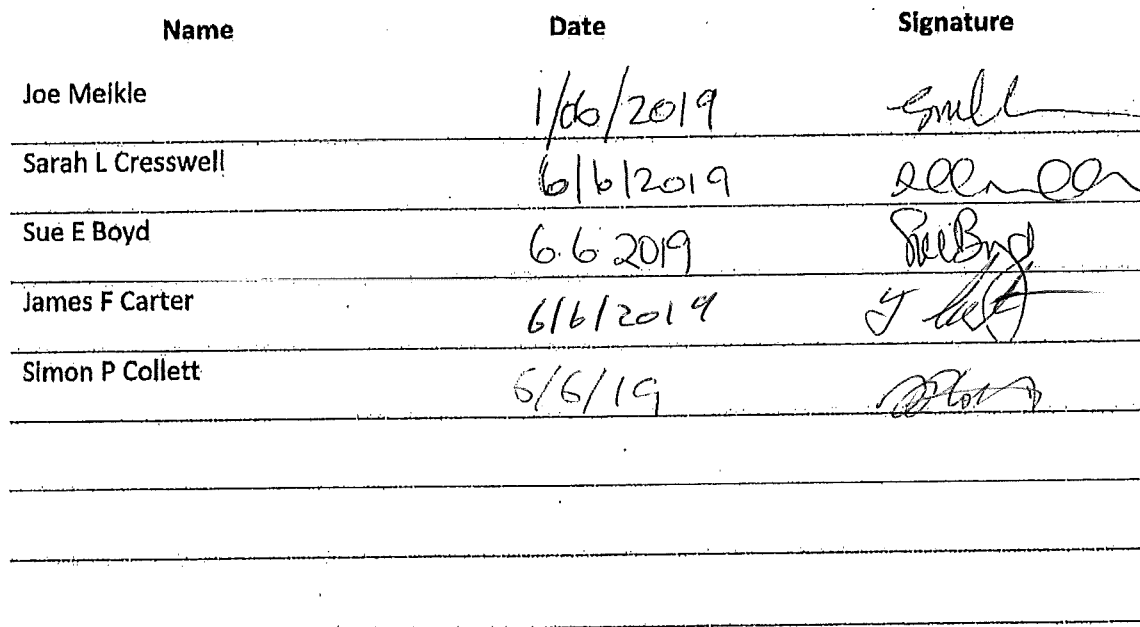 Name Date Signature
Joe Meikle 1/06/2019
Sarah L Cresswell 6/6/2019
Sue E Boyd 6.6.2019 Sue Boyd
James F Carter 6/6/2019
Simon P Collett 6/6/19